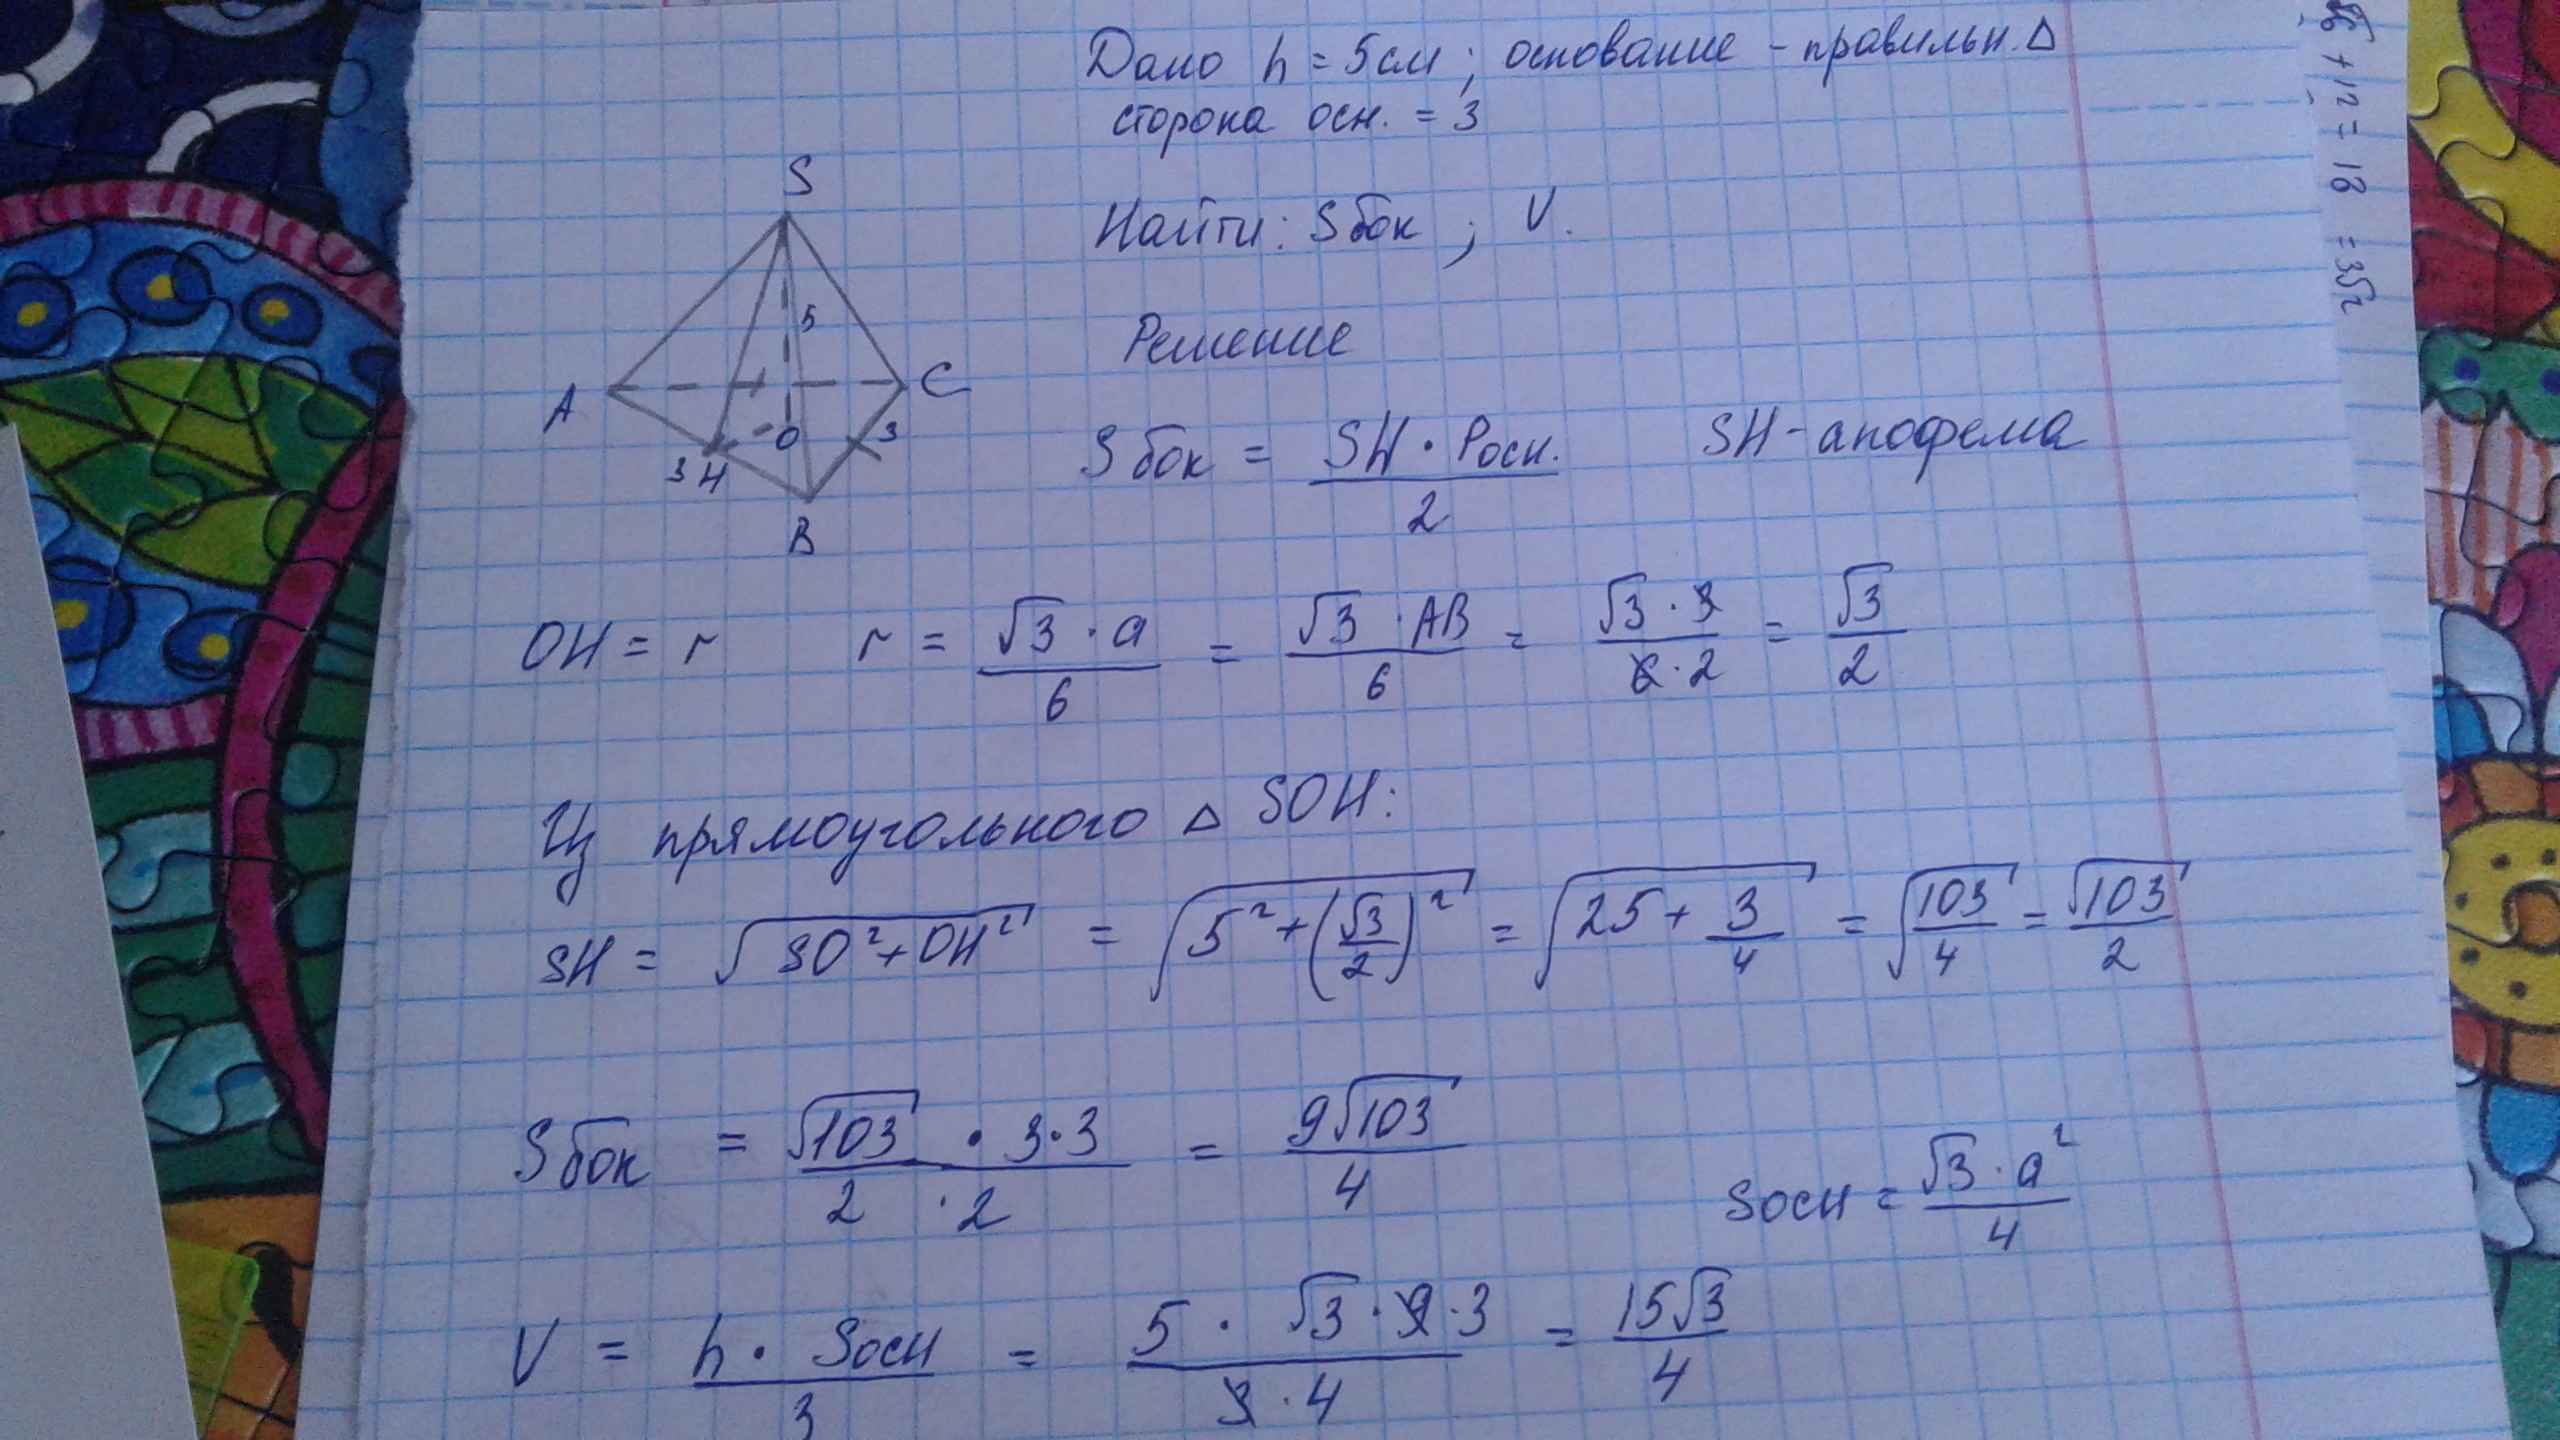 Дано h = 5см; основание - правильн. △
сторона осн. = 3
Найти: Sбок ; V.
Решение
S
5
A
C
O
3
3 H
B
Sбок = SH · Pосн. / 2    SH - апофема
OH = r    r = √3 · a / 6 = √3 · AB / 6 = √3 · 3 / 6 · 2 = √3 / 2
Из прямоугольного △ SOH:
SH = √(SO² + OH²) = √(5² + (√3/2)²) = √(25 + 3/4) = √(103/4) = √103 / 2
Sбок = √103 · 3 · 3 / 2 · 2 = 9√103 / 4
Sосн = √3 · a² / 4
V = h · Sосн / 3 = 5 · √3 · 9 · 3 / 3 · 4 = 15√3 / 4
+12 = 18